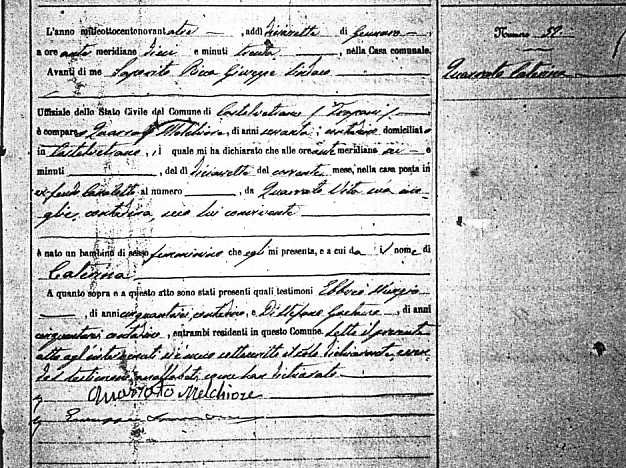 L'anno milleottocentonovantatre —, addì diciasette di Gennaro —
a ore ante meridiane dieci e minuti trenta, nella Casa comunale.
Avanti di me Saporito Ricca Giuseppe Sindaco
Uffiziale dello Stato Civile del Comune di Castelvetrano (Trapani) —
è comparso Quarrato Melchiore, di anni sessanta, contadino domiciliato
in Castelvetrano, il quale mi ha dichiarato che alle ore ante meridiane sei — e
minuti —, del dì diciasette del corrente mese, nella casa posta in
al numero —, da Quarrato Vita sua mo-
glie, contadina, seco lui convivente
è nato un bambino di sesso femminino che egli mi presenta, e a cui dà il nome di
Caterina
A quanto sopra e a questo atto sono stati presenti quali testimoni
—, di anni cinquantasei, contadino, e Di Stefano Gaetano —, di anni
contadino, entrambi residenti in questo Comune. Letto il presente
atto agli intervenuti si è meco sottoscritto il solo dichiarante, essen
do i testimoni analfabeti, come han dichiarato —
Quarrato Melchiore
Numero 57.
Quarrato Caterina